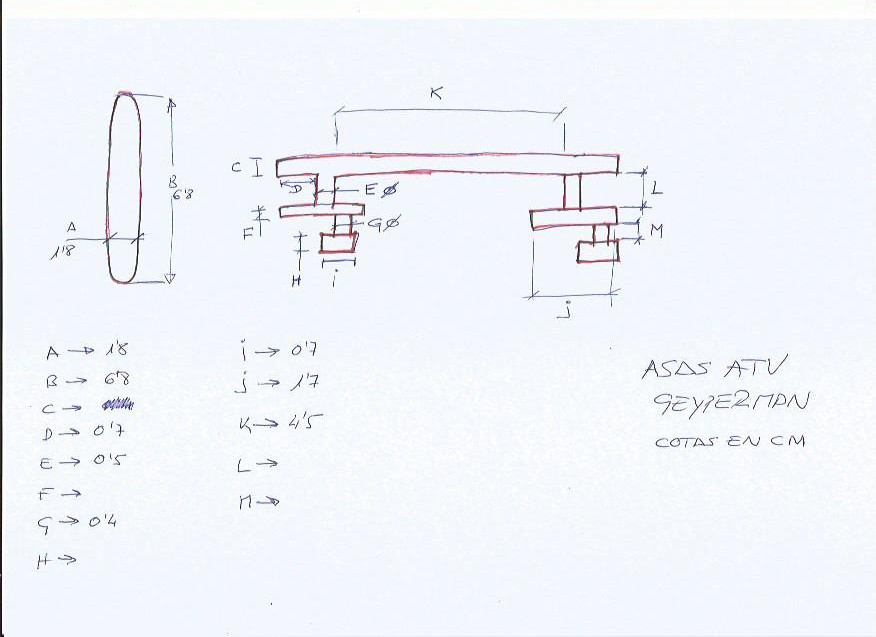 K
C
D
E Ø
L
B
6'8
F
GØ
M
A
1'8
H
i
j
A → 1'8
B → 6'8
C →
D → 0'7
E → 0'5
F →
G → 0'4
H →
i → 0'7
j → 1'7
K → 4'5
L →
M →
ASAS ATV
GEYPERMAN
COTAS EN CM